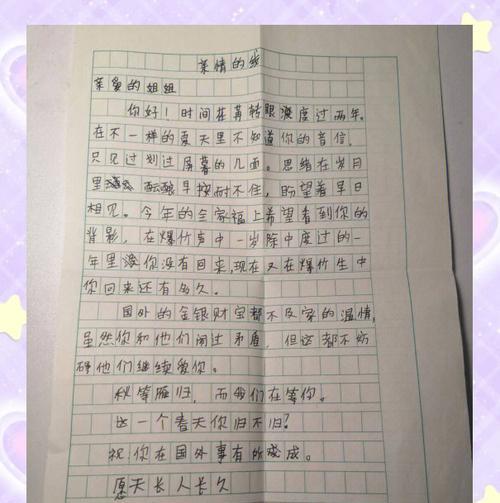 亲情的线
亲爱的姐姐
你好!时间在再转眼渡度过两年,
在不一样的夏天里不知道你的音信,
只见过划过屏幕的几面。思绪在岁月
里酝酿早按耐不住,盼望着早日
相见。今年的全家福上希望看到你的
背影,在爆竹声中一岁除中度过的一
年里渡你没有回来,现在又在爆竹生中
你回来还有多久。
国外的金银财宝都不及家的温情,
虽然你和他们闹过矛盾,但这都不妨
碍他们继续爱你。
秋等雁归,而我们在等你。
这一个春天你归不归?
祝你在国外事有所成。
愿天长人长久